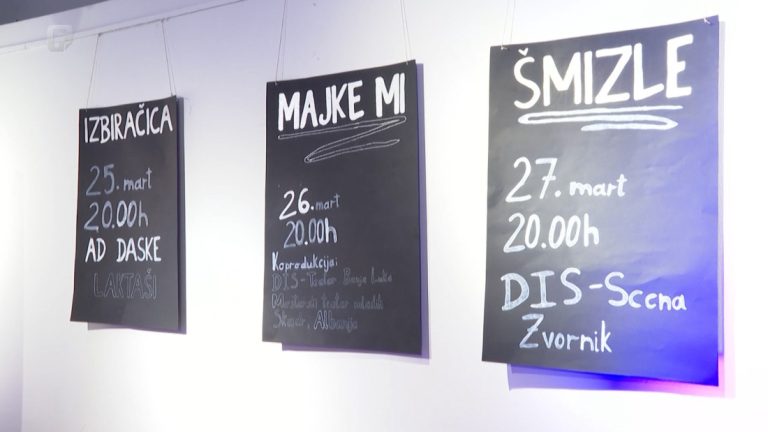 IZBIRAČICA
25. mart
20.00h
AD DASKE
LAKTAŠI
MAJKE MI
26. mart
20.00h
Koprodukcija:
DIS-Teatar Banja Luka
Mostarski teatar mladih
Skadar, Albanija
ŠMIZLE
27. mart
20.00h
DIS-Scena
Zvornik